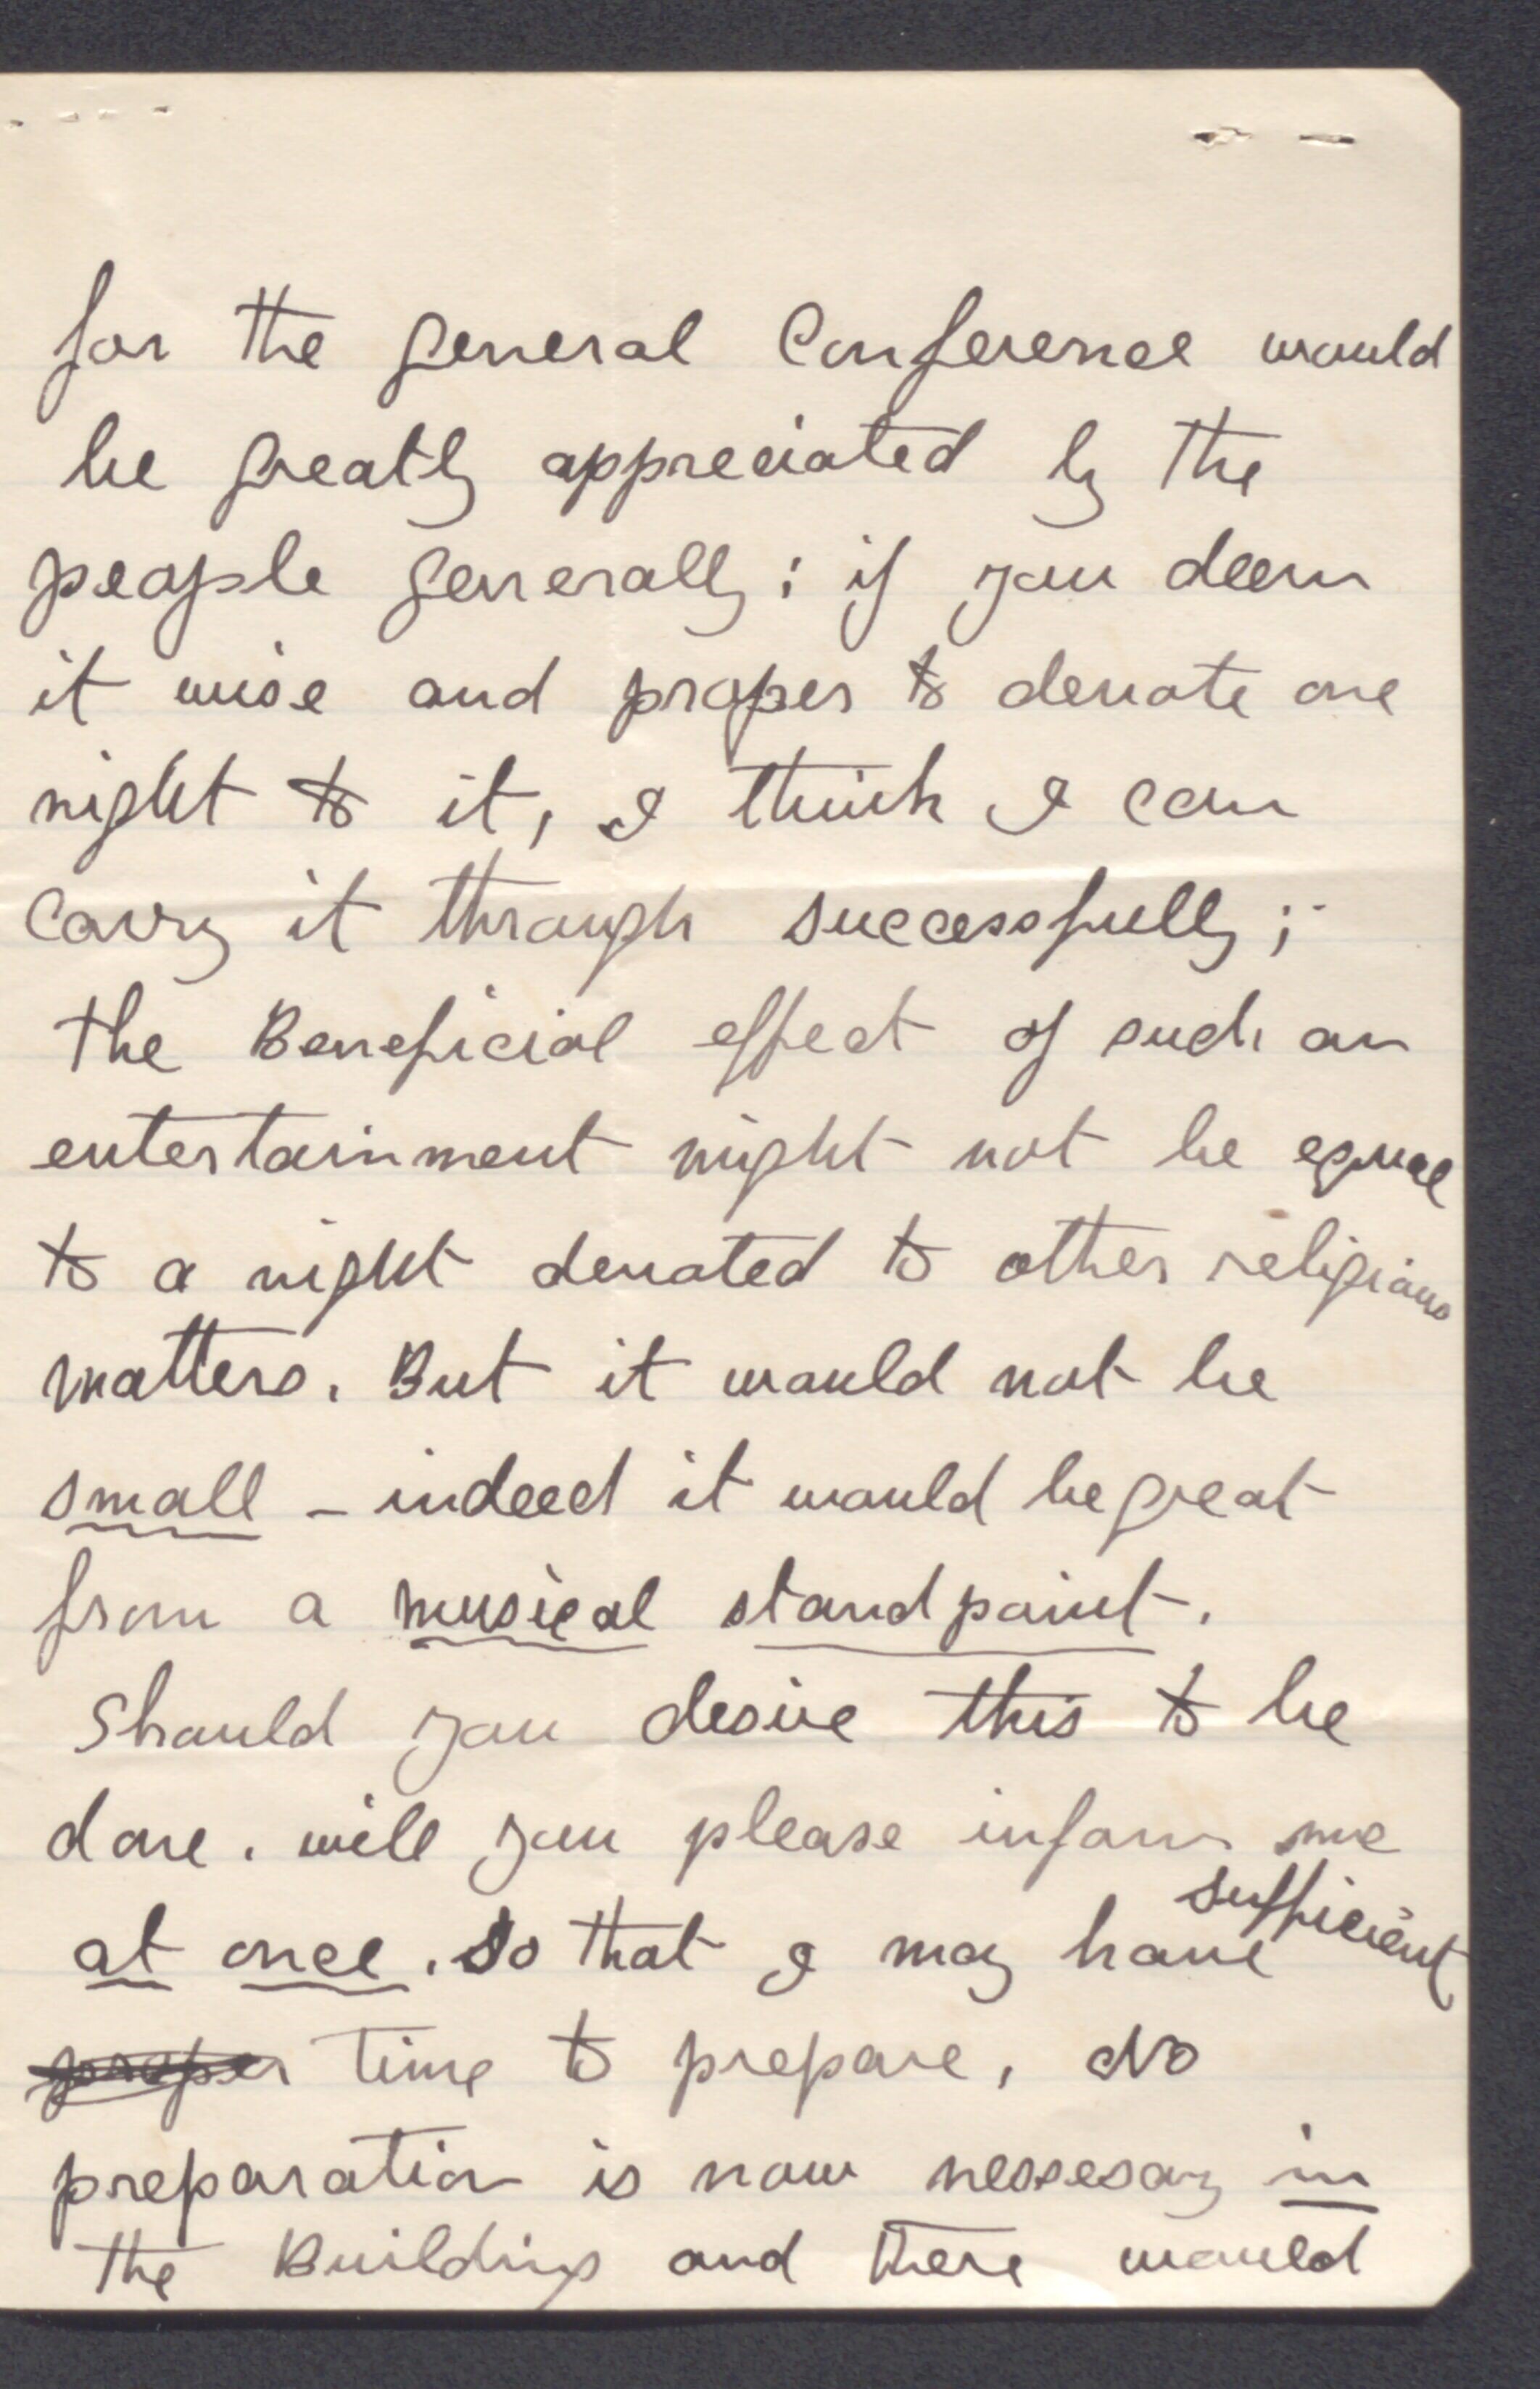 for the general Conference would
be greatly appreciated by the
people generally; if you deem
it wise and proper to devote one
night to it, I think I can
carry it through successfully;
the Beneficial effect of such an
entertainment might not be equal
to a night devoted to other religious
matters. But it would not be
small - indeed it would be great
from a musical standpoint.
Should you desire this to be
done. will you please inform me
at once. so that I may have sufficient
proper time to prepare, No
preparation is now nessesary in
the Building and there would